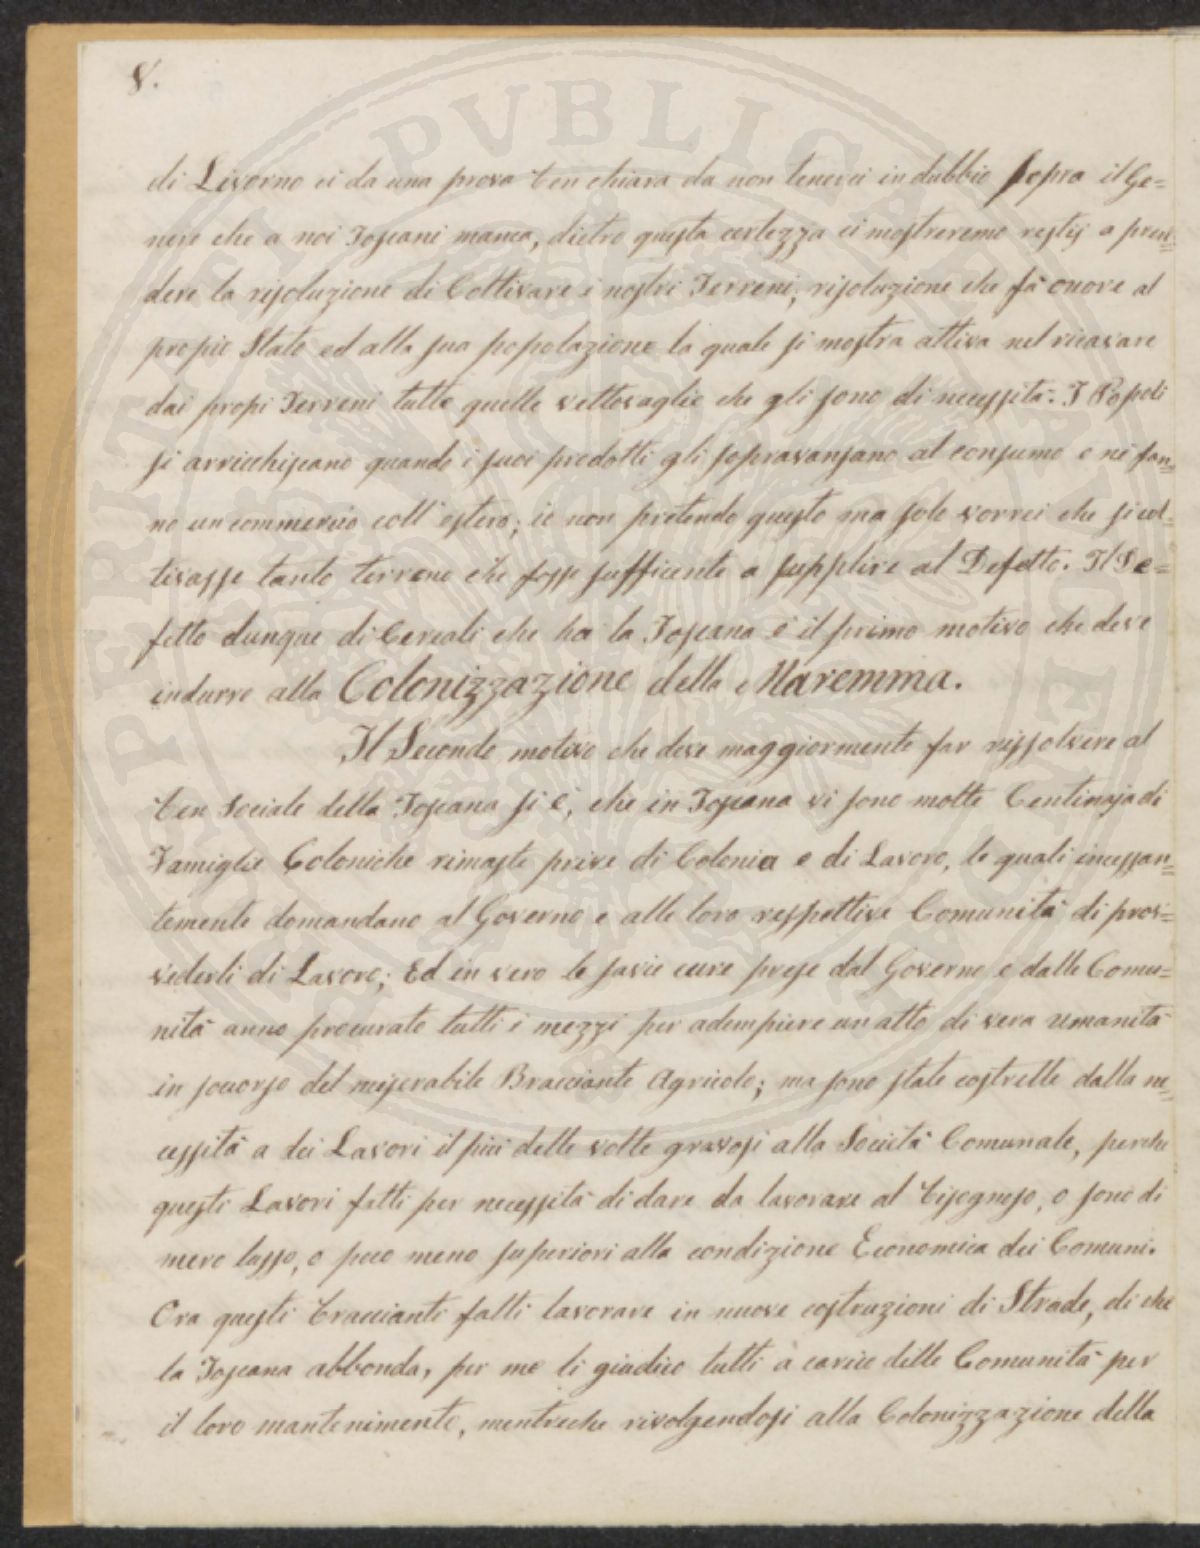 8.
di Livorno ci da una prova ben chiara da non tenerci in dubbio sopra il Ge=
nere che a noi Toscani manca, dietro questa certezza ci mostreremo restij a pren=
dere la risoluzione di Coltivare i nostri Terreni, risoluzione che fà onore al
propio Stato ed alla sua popolazione la quale si mostra attiva nel ricavare
dai propi Terreni tutte quelle vettovaglie che gli sono di necessità. I Popoli
si arricchiscano quando i suoi prodotti gli sopravansano al consumo e ne fan=
no un commercio coll'estero; io non pretendo questo ma solo vorrei che si col=
tivasse tanto terreno che fosse sufficente a supplire al Defetto. Il De=
fetto dunque di Cereali che ha la Toscana è il primo motivo che deve
indurre alla Colonizzazione della Maremma.
Il Secondo motivo che deve maggiormente far rissolvere al
ben Sociale della Toscana si è, che in Toscana vi sono molte Centinaja di
Famiglie Coloniche rimaste prive di Colonia e di Lavoro, le quali incessan=
temente domandano al Governo e alle loro respettive Comunità di prov=
vederli di Lavoro; Ed in vero le savie cure prese dal Governo e dalle Comu=
nità anno procurato tutti i mezzi per adempiere un atto di vera umanità
in soccorso del miserabile Bracciante Agricolo; ma sono state costrette dalla ne=
cessità a dei Lavori il più delle volte gravosi alla Società Comunale, perche
questi Lavori fatti per necessità di dare da lavorare al bisognoso, o sono di
mero lusso, o poco meno superiori alla condizione Economica dei Comuni.
Ora questi braccianti fatti lavorare in nuove costruzioni di Strade, di che
la Toscana abbonda, per me li giudico tutti à carico delle Comunità per
il loro mantenimento, mentreche rivolgendosi alla Colonizzazione della
PERITATE PUBLICAE